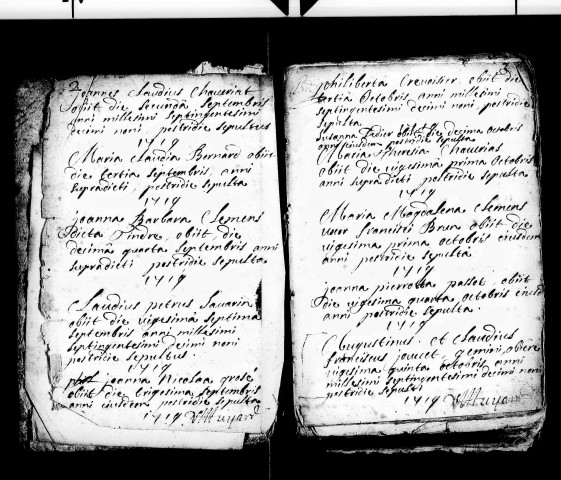 2
joannes Claudius Chauvriat
obiit die secunda septembris
anni millesimi septingentesimi
decimi noni, postridie sepultus
1719
Maria Claudia Bernard obiit
die tertia septembris, anni
supradicti, postridie sepulta
1719
joanna Barbara Clemens
dicta obiit die
decima quarta septembris anni
supradicti postridie sepulta
1719
Claudius petrus Lavaria
obiit die vigesima septima
septembris anni millesimi
septingentesimi decimi noni
postridie sepultus
1719
joanna Nicolaa grosé
obiit die trigesima septembris
anni eiusdem postridie sepulta
1719
3
philiberta Crenoisier obiit die
tertia octobris, anni millesimi
septingentesimi decimi noni, postridie
sepulta
susanna didier obiit die decima octobris
postridie sepulta
Maria Theresia Chauvrias
obiit die vigesima prima octobris
anni supradicti postridie sepulta
1719
Maria Magdalena Clemens
uxor francisci Brun obiit die
vigesima prima octobris eiusdem
anni postridie sepulta
1719
joanna pierrotta passot obiit
die vigesima quarta octobris
anni postridie sepulta.
1719
Augustinus et Claudius
franciscus joucet, gemini, obiere
vigesima quinta octobris anni
millesimi septingentesimi decimi noni
postridie sepulti
1719